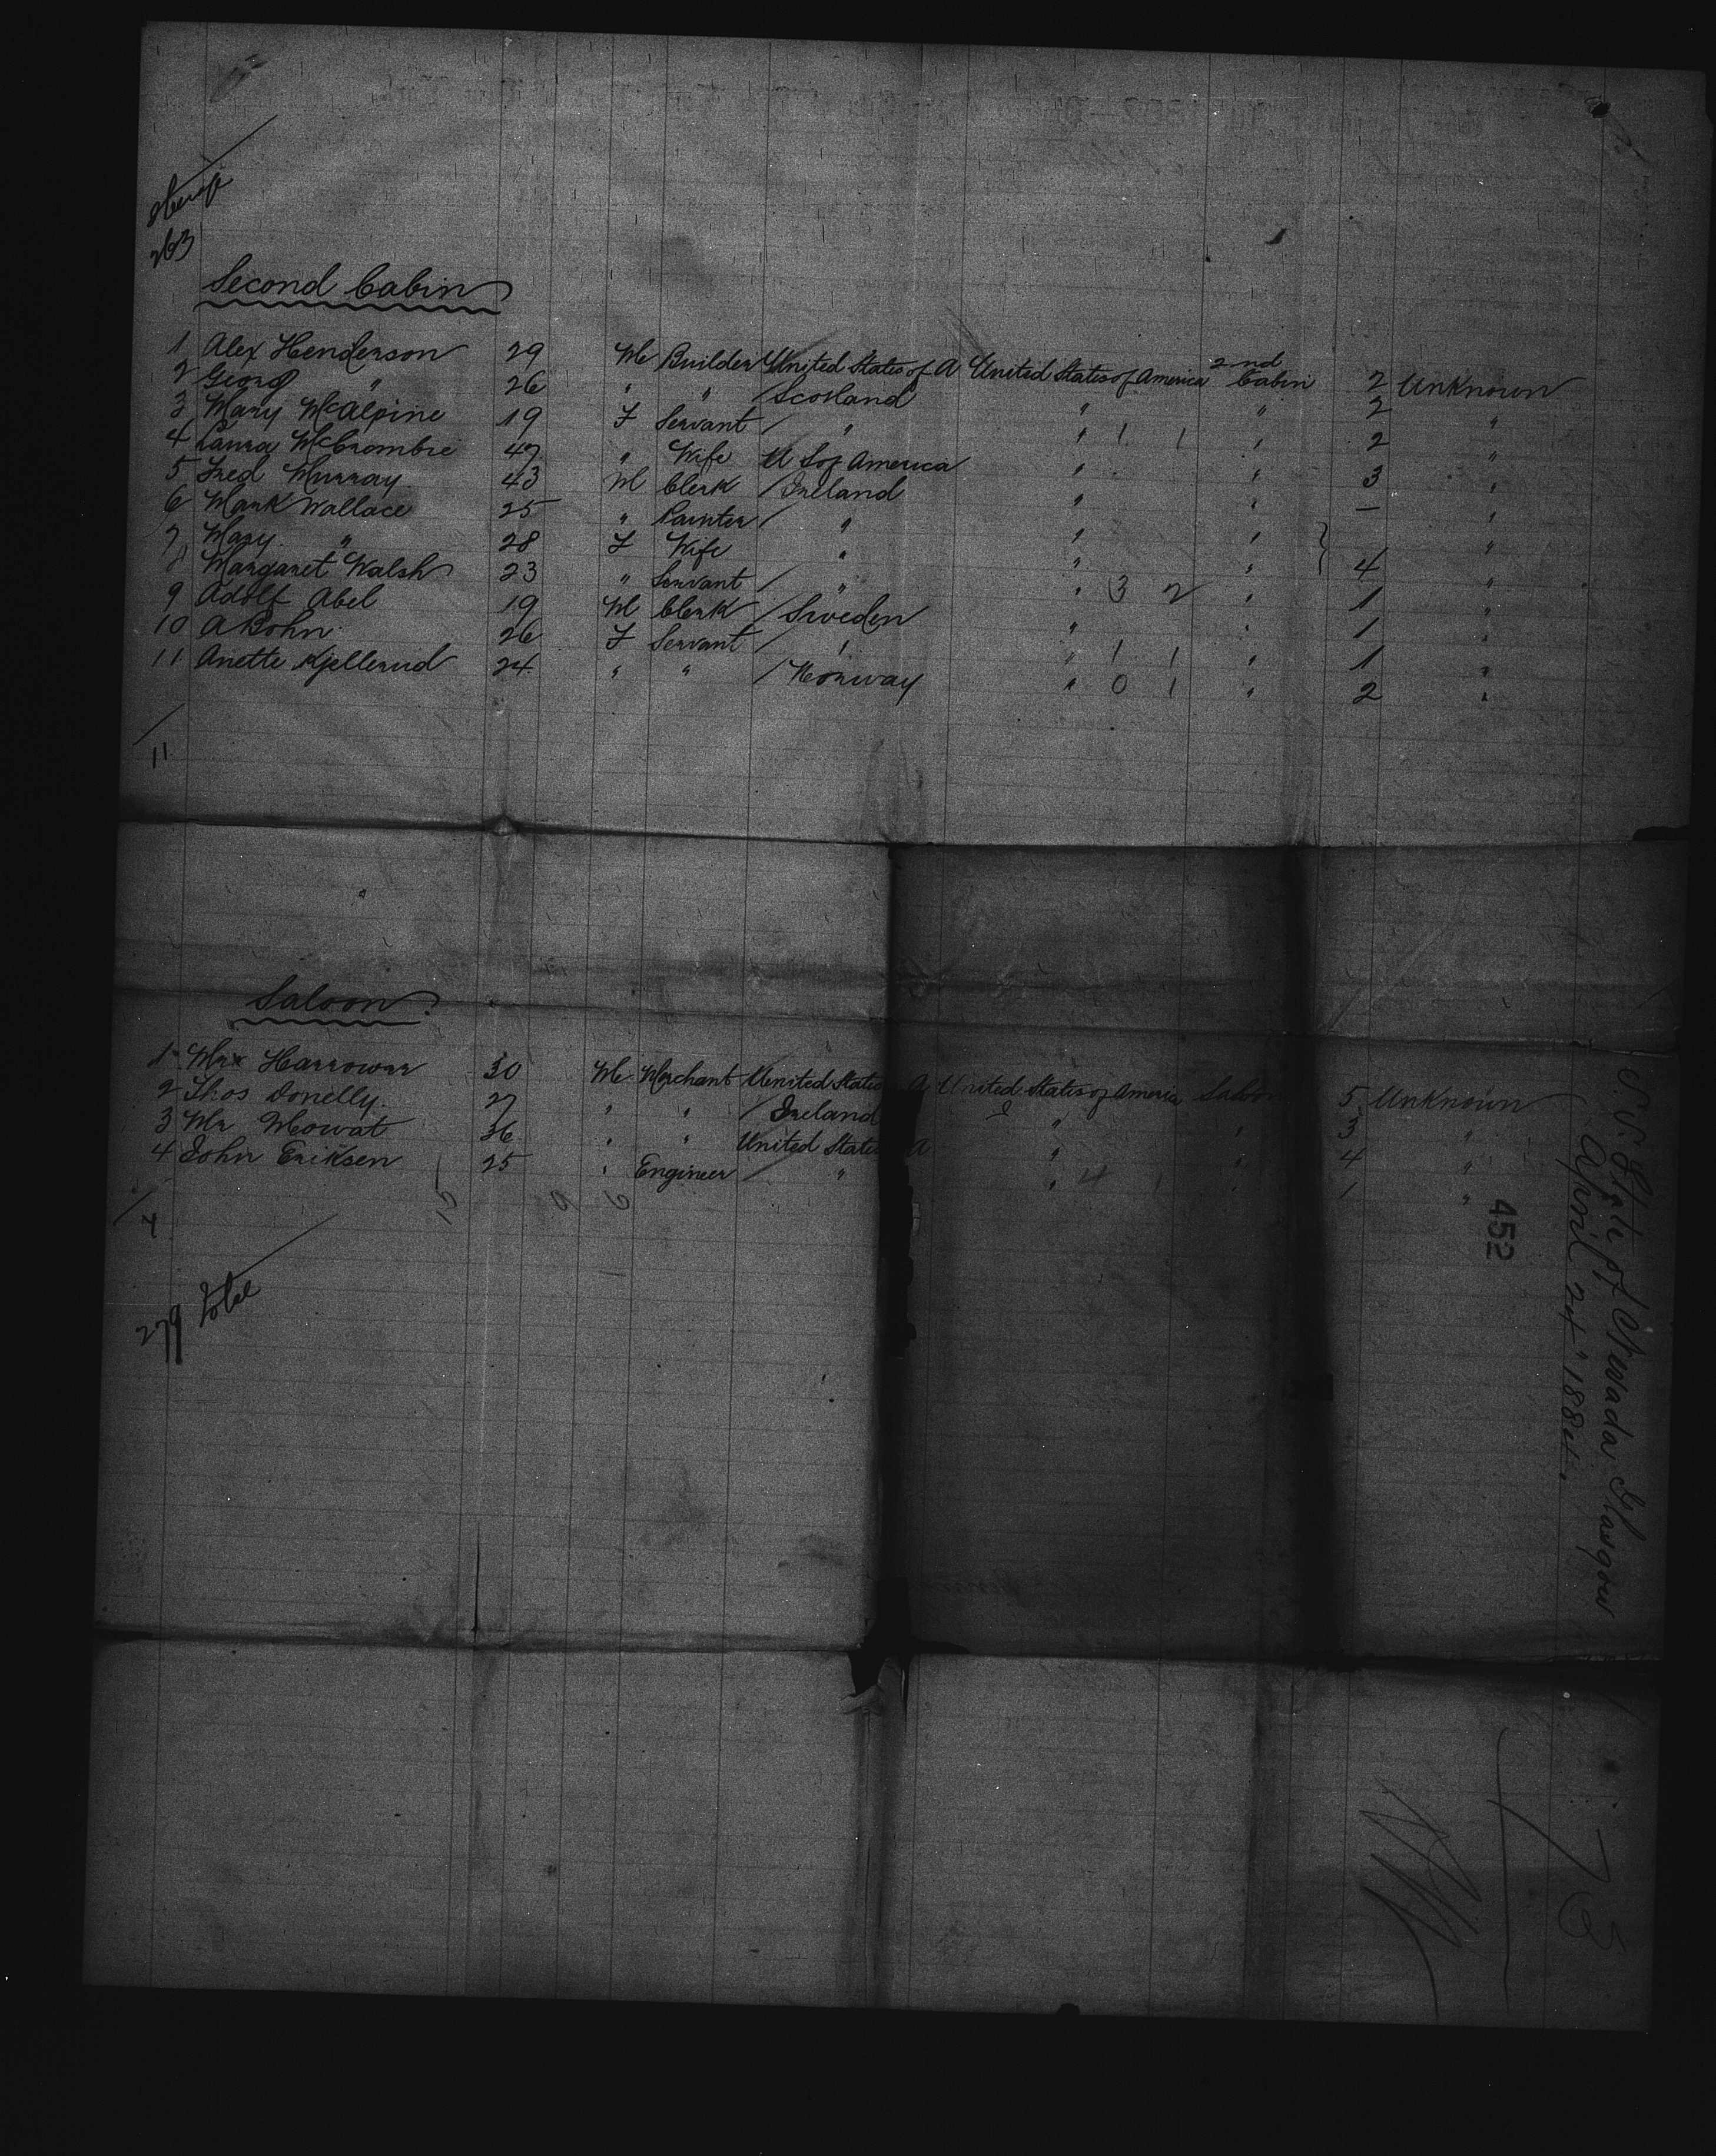 263
Second Cabin
1 Alex Henderson 29 M Builder United States of A United States of America 2nd Cabin 2 Unknown
2 George " 26 " " Scotland " " 2 "
3 Mary McAlpine 19 F Servant " " 1 1 " 2 "
4 Laura McCrombie 47 " Wife U S of America " " 3 "
5 Fred Murray 43 M Clerk Ireland " " — "
6 Mark Wallace 25 " Painter " " " "
7 Mary " 28 F Wife " " " 4 "
8 Margaret Walsh 23 " Servant " " 3 2 " 1 "
9 Adolf Abel 19 M Clerk Sweden " " 1 "
10 A Bohn 26 F Servant " " 1 1 " 1 "
11 Anette Kjellerud 24 " " Norway " 0 1 " 2 "
11
Saloon
1 Harrower 30 M Merchant United States A United States of America Saloon 5 Unknown
2 Thos Donelly 27 " " Ireland " " 3 "
3 Mr Mowat 36 " " United States A " " 4 "
4 John Eriksen 25 " Engineer " " 4 1 "
4
279 Total
S.S. State of Nevada Glasgow
April 24" 1884.
452
73